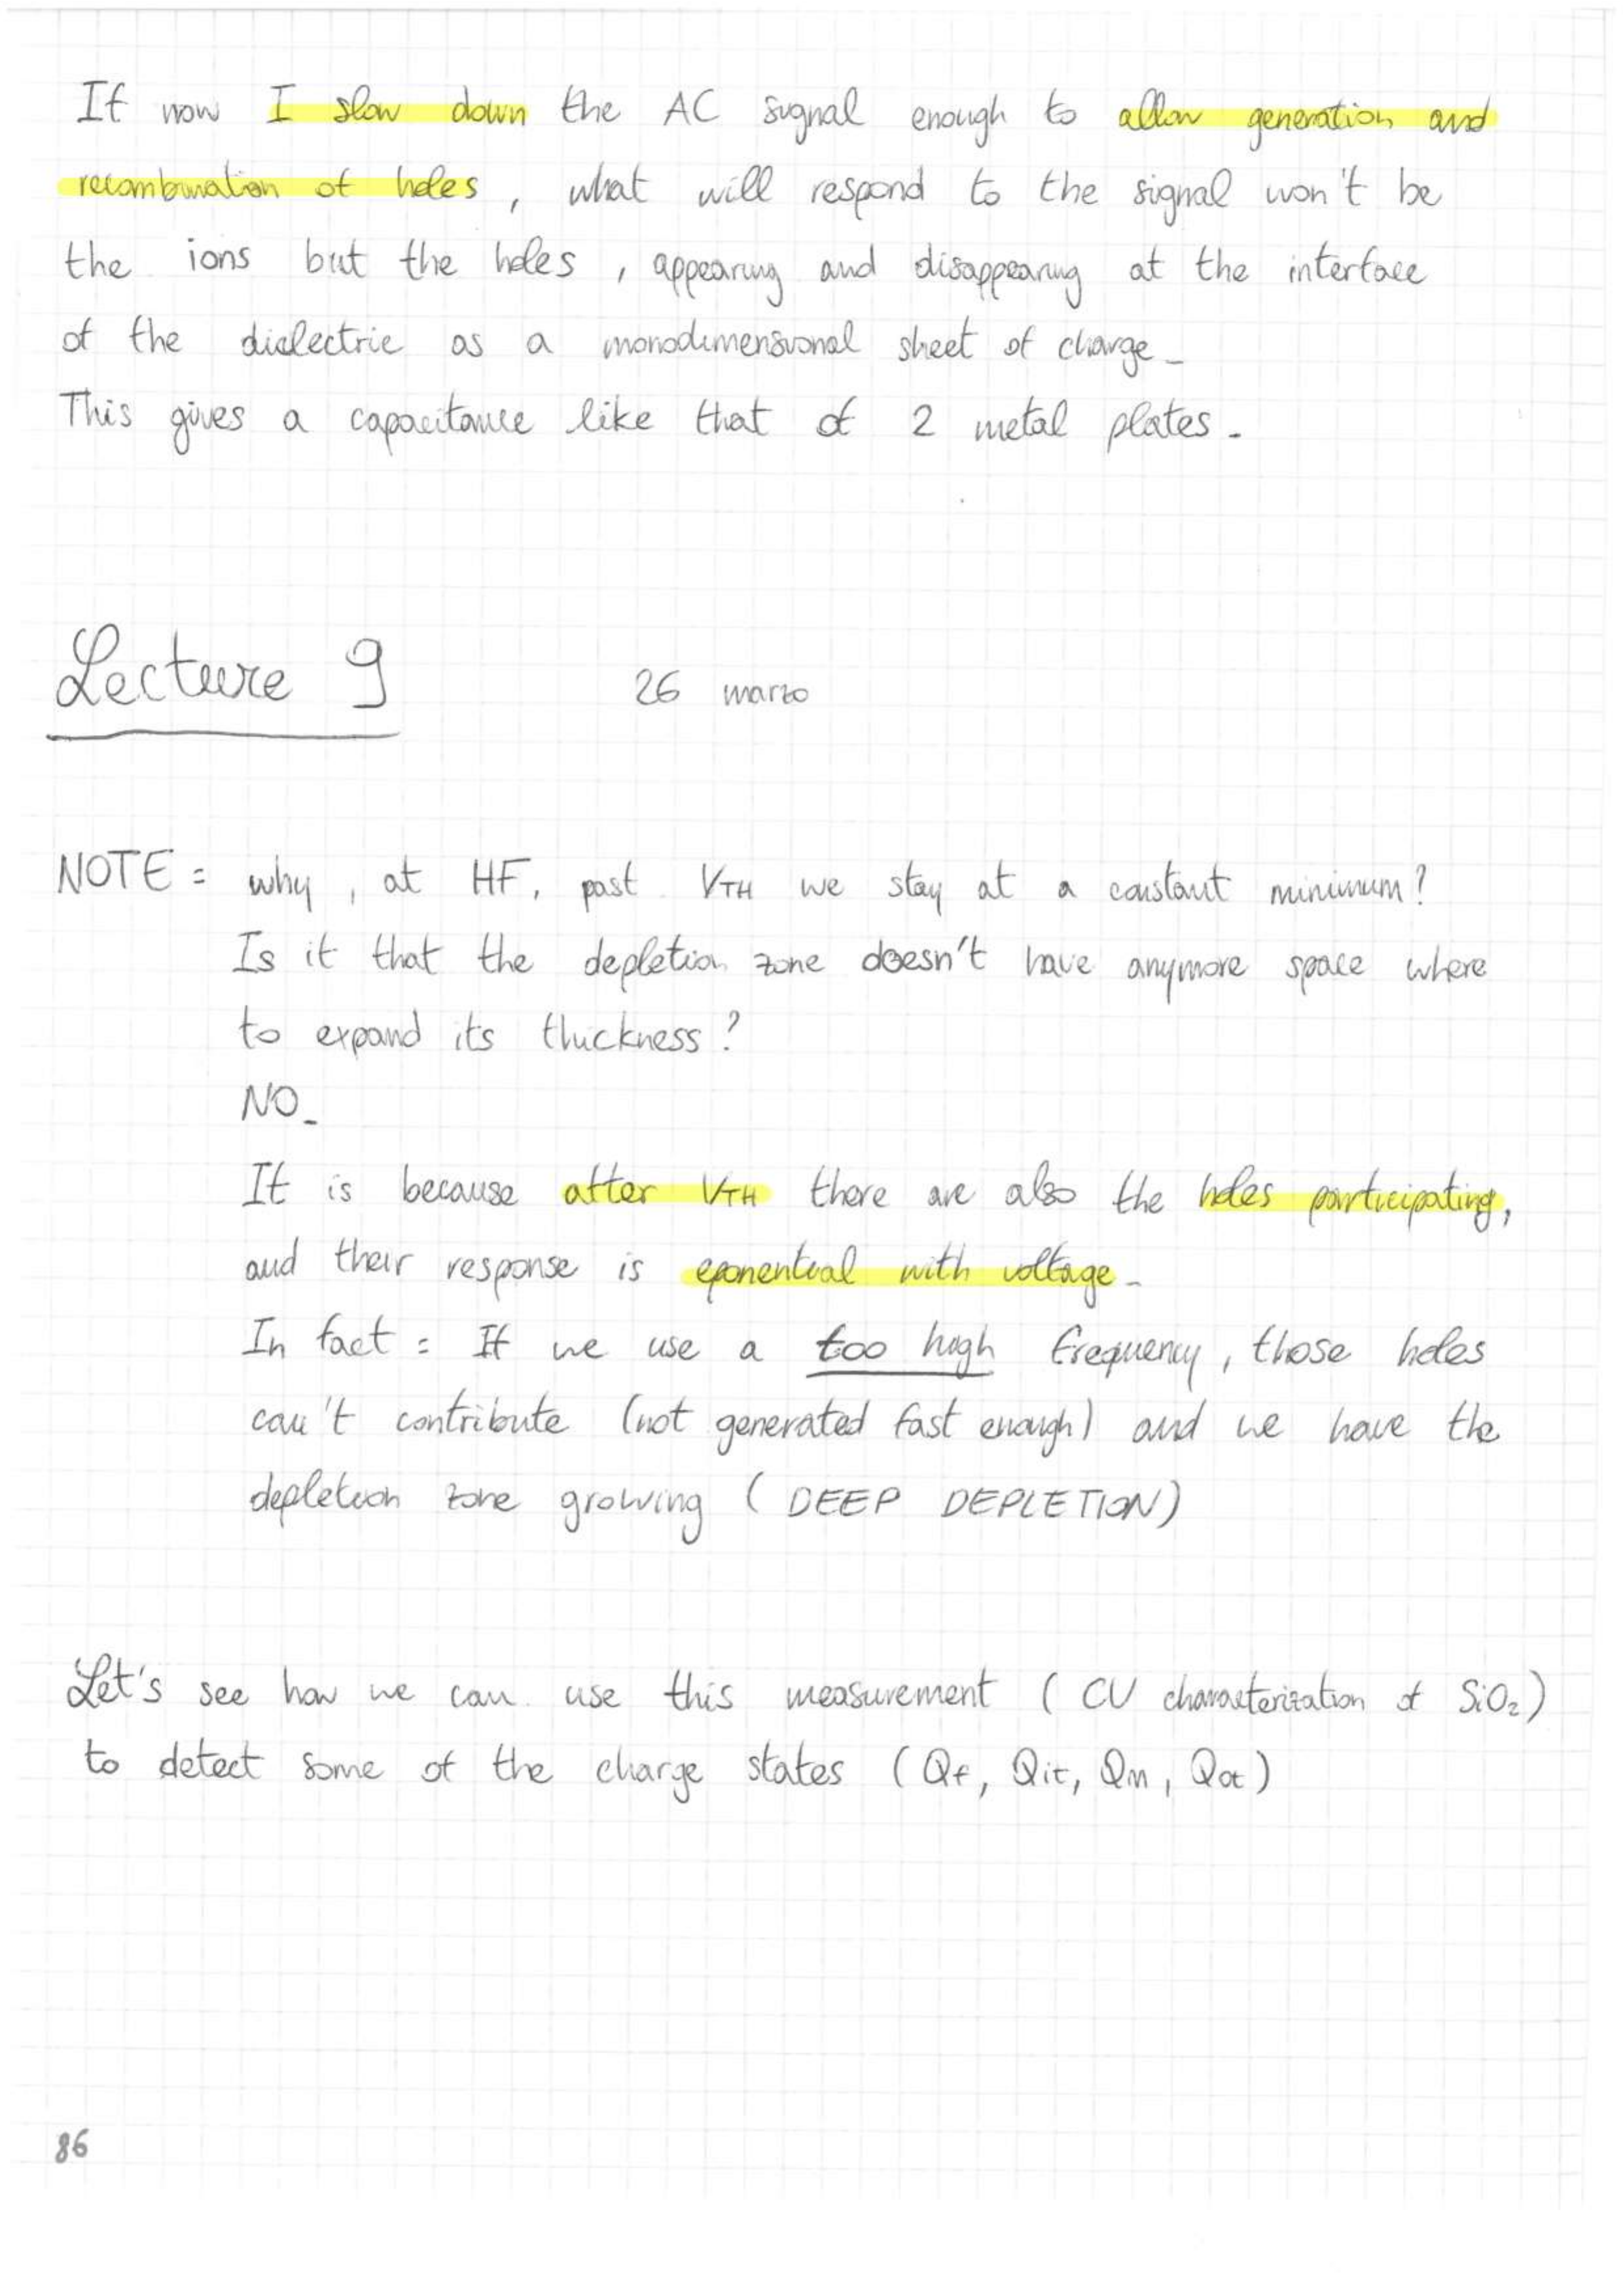 If now I slow down the AC signal enough to allow generation and
recombination of holes, what will respond to the signal won't be
the ions but the holes, appearing and disappearing at the interface
of the dielectric as a monodimensional sheet of charge.
This gives a capacitance like that of 2 metal plates.
Lecture 9 26 marzo
NOTE: why, at HF, past VTH we stay at a constant minimum?
Is it that the depletion zone doesn't have anymore space where
to expand its thickness?
NO.
It is because after VTH there are also the holes participating,
and their response is eponential with voltage.
In fact: If we use a too high frequency, those holes
can't contribute (not generated fast enough) and we have the
depletion zone growing (DEEP DEPLETION)
Let's see how we can use this measurement (CV characterization of SiO₂)
to detect some of the charge states (Qf, Qit, Qm, Qot)
86